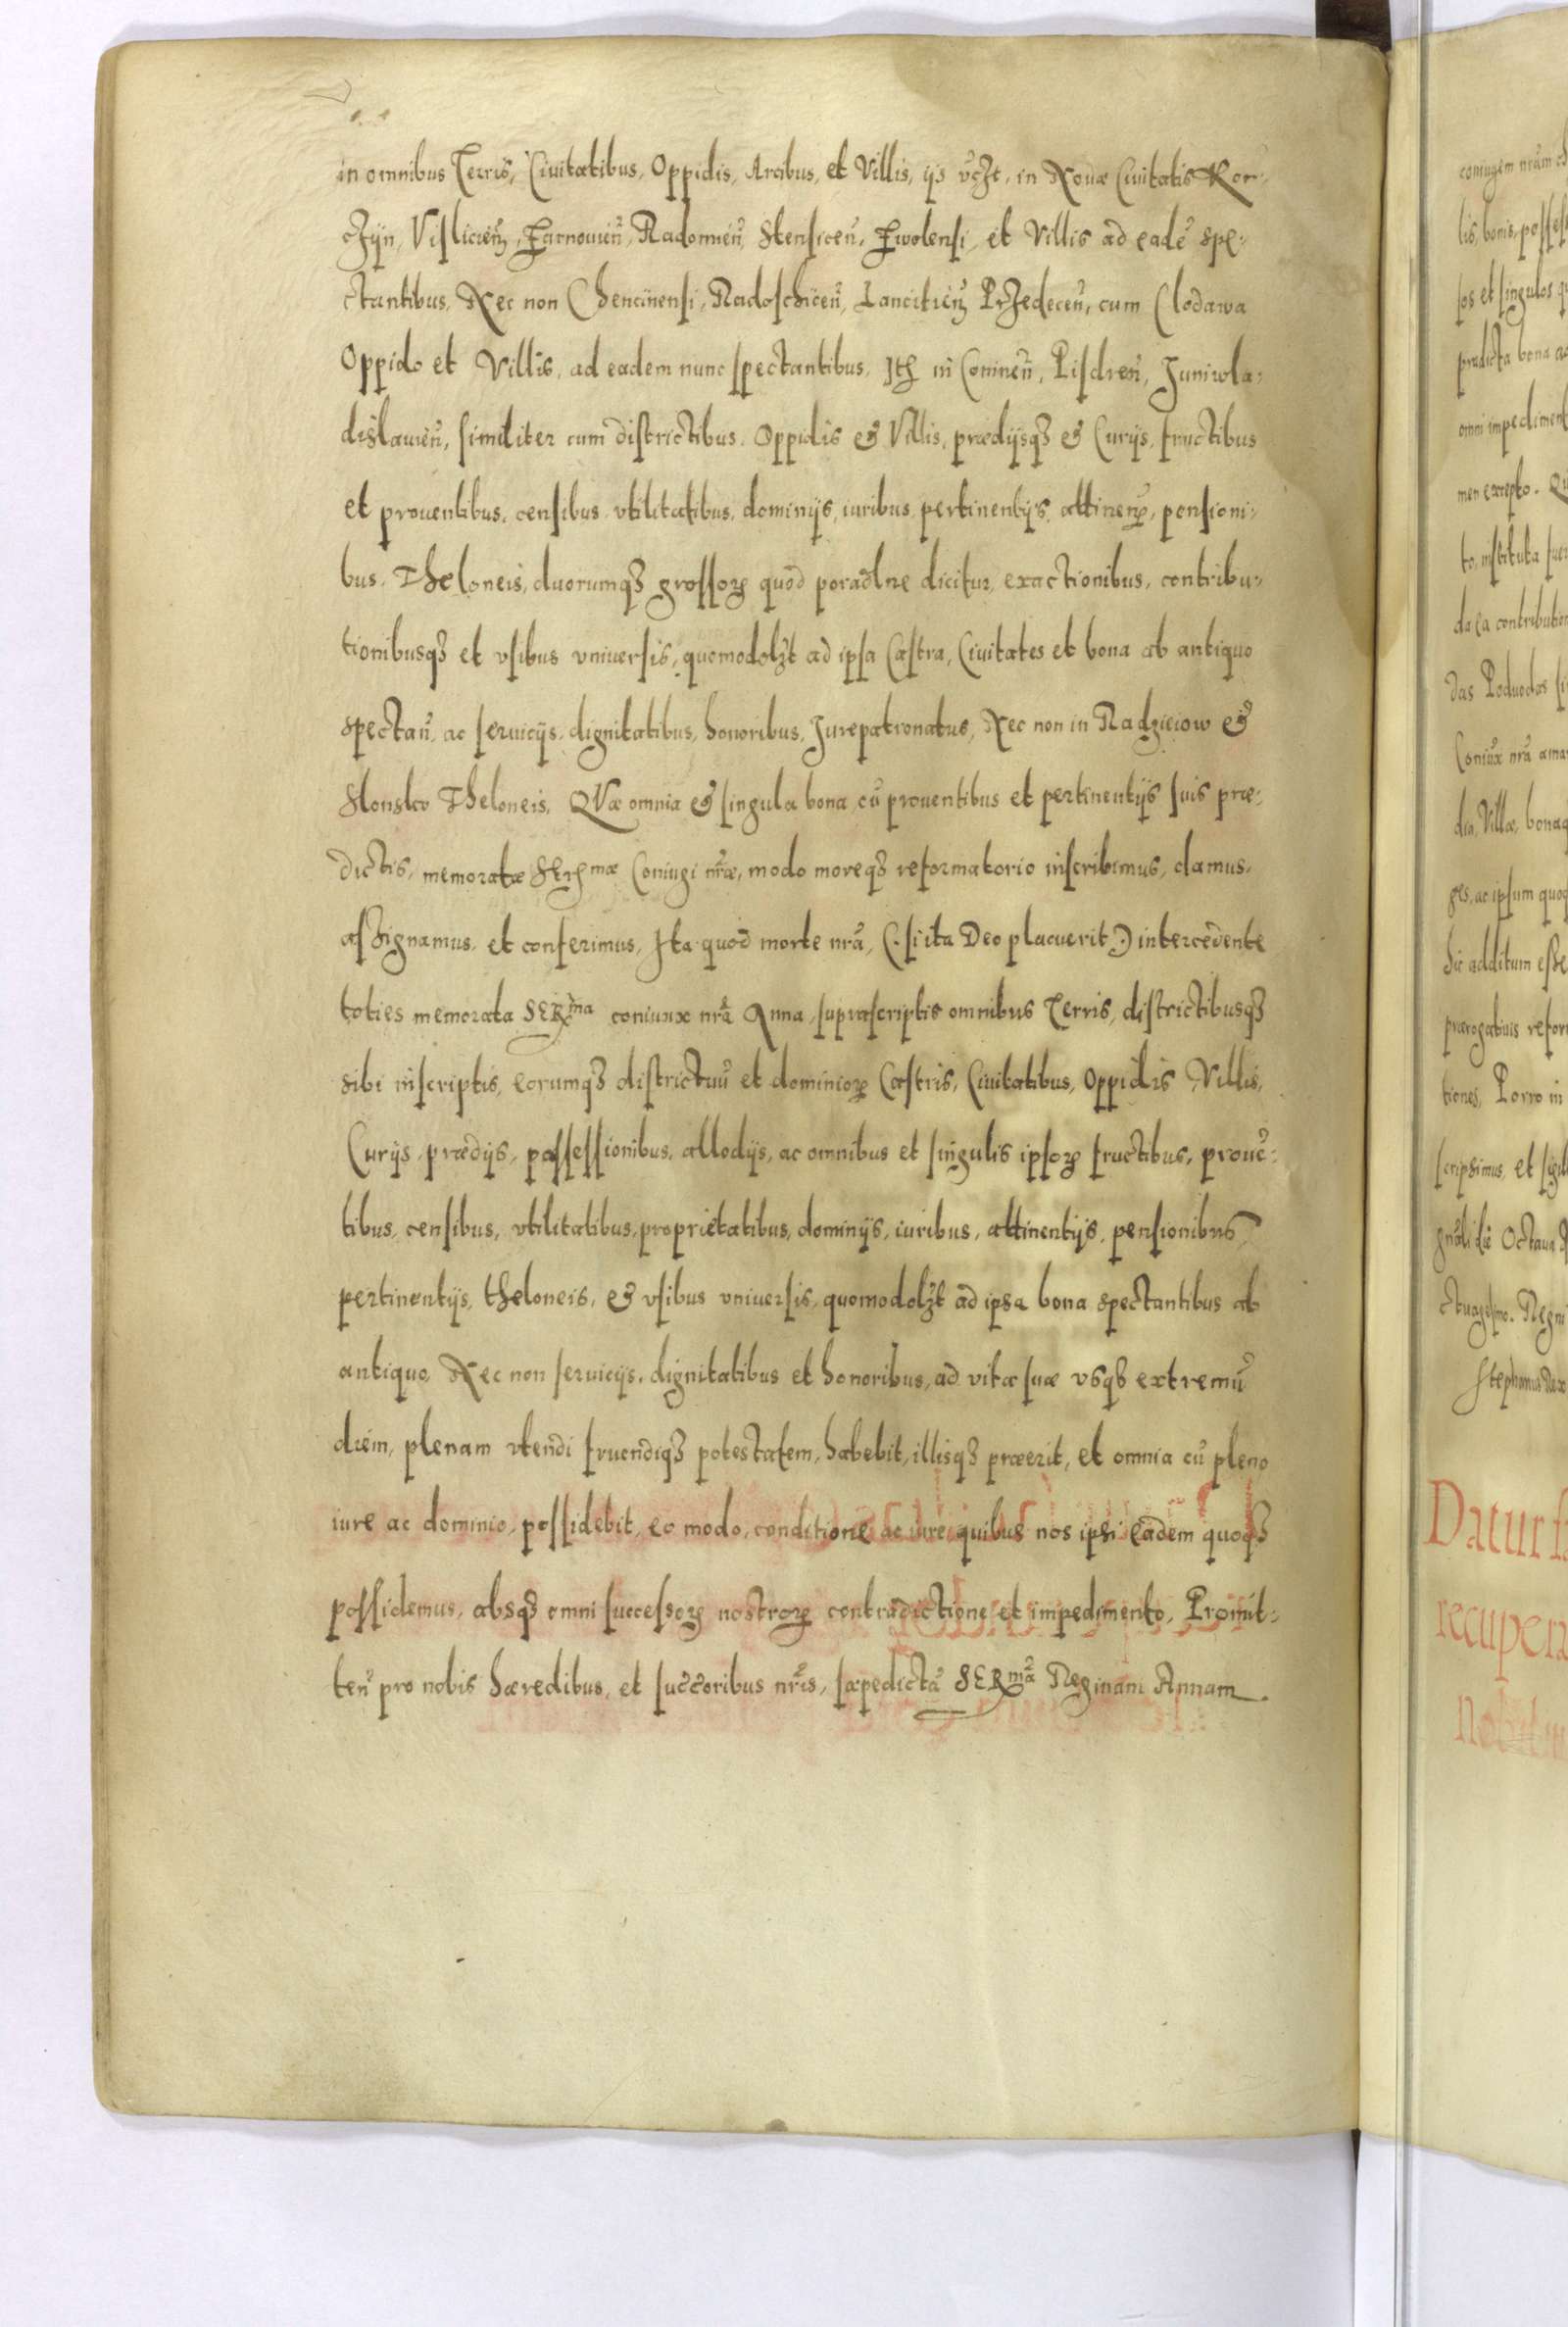 in omnibus Terris, Ciuitatibus, Oppidis, Arcibus, et Villis, ijs vcꝫt, in Nouæ Ciuitatis Kor-
cꝫijn, Visliciēn, Zarnouieñ, Radomieñ, Stensiceñ, Zwolensi, et Villis ad eadē spe-
ctantibus, Nec non Chencinensi, Radoschiceñ, Lanciticēn Prꝫedeceñ, cum Clodawa
Oppido et Villis, ad eadem nunc spectantibus, Itē in Conineñ, Pisdreñ, Juniwla-
dislauieñ, similiter cum districtibus, Oppidis & Villis, prædijsqꝫ & Curijs, fructibus
et prouentibus, censibus, vtilitatibus, dominijs, iuribus, pertinentijs, attineñ, pensioni-
bus, Theloneis, duorumqꝫ grossoꝝ quod poradlne dicitur, exactionibus, contribu-
tionibusqꝫ et vsibus vniuersis, quomodolꝫt ad ipsa Castra, Ciuitates et bona ab antiquo
spectañ, ac seruicijs, dignitatibus, honoribus, Jurepatronatus, Nec non in Radzieiow &
Slonsko Theloneis, QVæ omnia & singula bona, cū prouentibus et pertinentijs suis præ-
dictis, memoratæ SERmæ Coniugi nr̄æ, modo moreqꝫ reformatorio inscribimus, damus,
assignamus, et conferimus, Ita quod morte nrā, (: si ita Deo placuerit :) intercedente
toties memorata SERma coniunx nrā Anna, suprascriptis omnibus Terris, districtibusqꝫ
sibi inscriptis, eorumqꝫ districtuū et dominioꝝ Castris, Ciuitatibus, Oppidis, Villis,
Curijs, prædijs, possessionibus, allodijs, ac omnibus et singulis ipsoꝝ fructibus, prouē-
tibus, censibus, vtilitatibus, proprietatibus, dominijs, iuribus, attinentijs, pensionibus,
pertinentijs, theloneis, & vsibus vniuersis, quomodolꝫt ad ipsa bona spectantibus ab
antiquo, Nec non seruicijs, dignitatibus et honoribus, ad vitæ suæ vsqꝫ extremū
diem, plenam vtendi fruendiqꝫ potestatem, habebit, illisqꝫ præerit, et omnia cū pleno
iure ac dominio, possidebit, eo modo, conditione ac iure quibus nos ipsi eadem quoqꝫ
possidemus, absqꝫ omni successoꝝ nostroꝝ contradictione et impedimento, Promit-
teñ pro nobis hæredibus, et succ̄oribus nr̄is, sæpedictā SERmā Reginam Annam
coniugem nram
lis, bonis, posses
sos et singulos
prædicta bona
omni impediment
men excepto.
to, instituta
da ea contribution
das Poduodas
Coniūx nrā ama
dia, Villæ, bonaq
ges, ac ipsum quod
hic additum esse
prærogatiuis refor
tiones, Porro in
scripsimus, et sigil
Octaua
Regni
Stephanus Rex
Datur fa
recupera
Nobilium